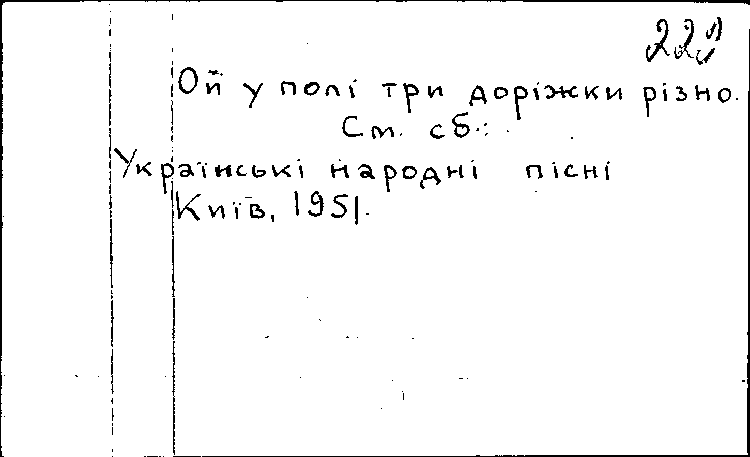 Ой у полі три доріжки різно.
См. сб.:
Українські народні пісні
Київ, 1951.